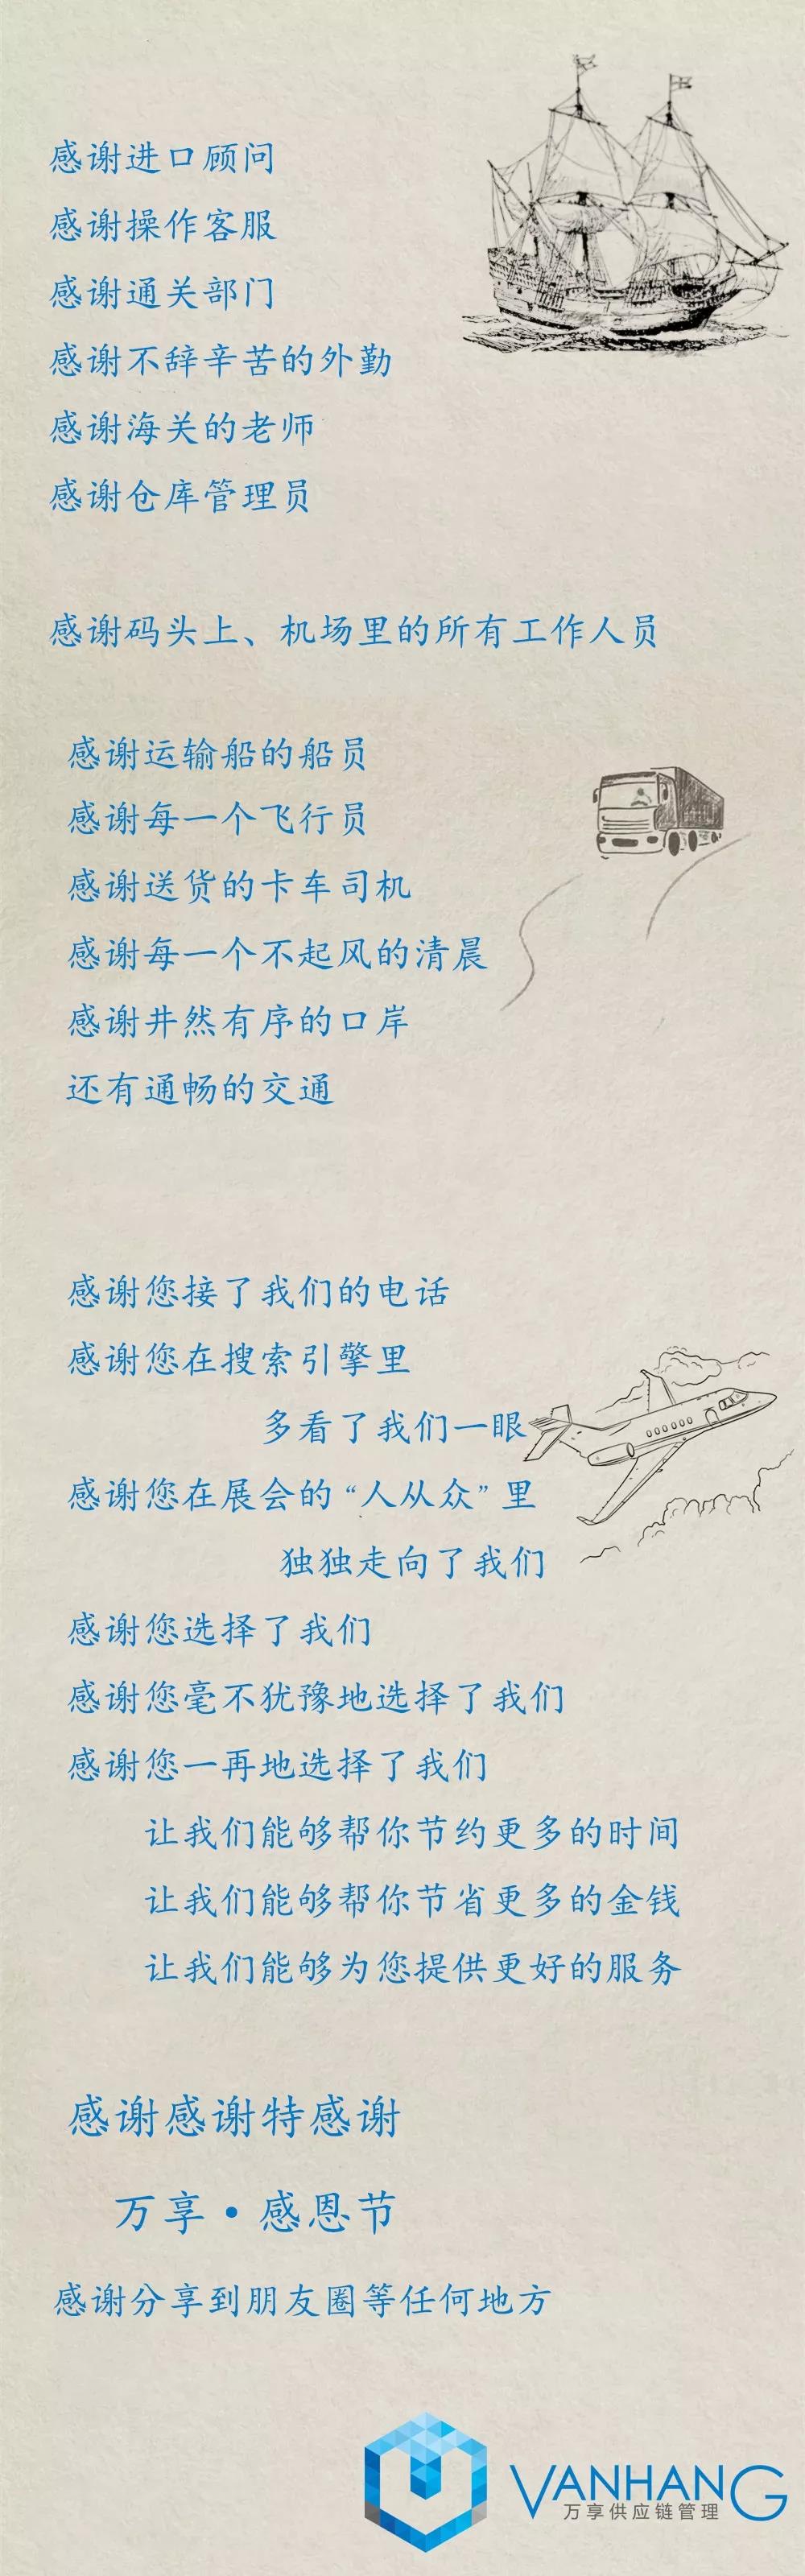 感谢进口顾问
感谢操作客服
感谢通关部门
感谢不辞辛苦的外勤
感谢海关的老师
感谢仓库管理员
感谢码头上、机场里的所有工作人员
感谢运输船的船员
感谢每一个飞行员
感谢送货的卡车司机
感谢每一个不起风的清晨
感谢井然有序的口岸
还有通畅的交通
感谢您接了我们的电话
感谢您在搜索引擎里
多看了我们一眼
感谢您在展会的“人从众”里
独独走向了我们
感谢您选择了我们
感谢您毫不犹豫地选择了我们
感谢您一再地选择了我们
让我们能够帮你节约更多的时间
让我们能够帮你节省更多的金钱
让我们能够为您提供更好的服务
感谢感谢特感谢
万享·感恩节
感谢分享到朋友圈等任何地方
VANHANG
万享供应链管理